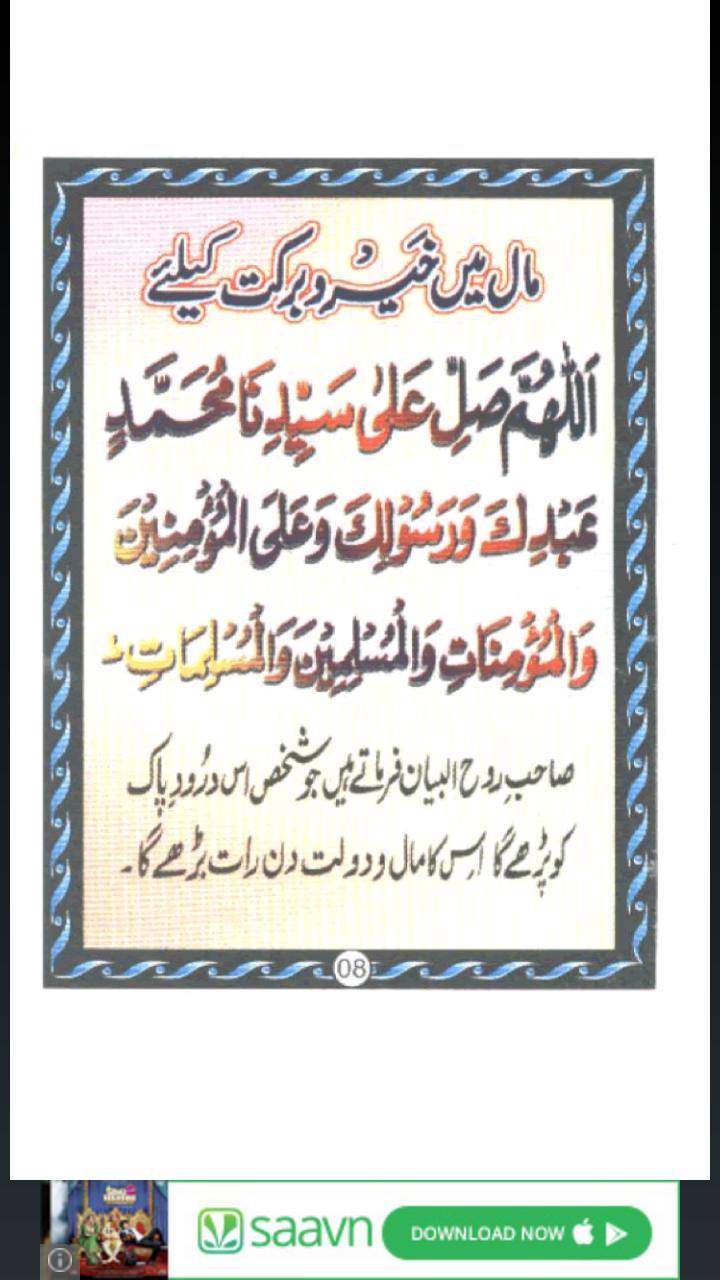 مال میں خَیْر و برکت کیلئے
اَللّٰهُمَّ صَلِّ عَلٰی سَیِّدِنَا مُحَمَّدٍ
عَبْدِكَ وَرَسُوْلِكَ وَعَلَی الْمُؤْمِنِیْنَ
وَالْمُؤْمِنَاتِ وَالْمُسْلِمِیْنَ وَالْمُسْلِمَاتِ ط
صاحبِ روح البیان فرماتے ہیں جو شخص اس درُودِ پاک
کو پڑھے گا اس کا مال و دولت دن رات بڑھے گا۔
08
saavn
DOWNLOAD NOW